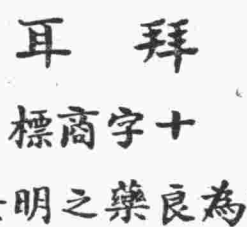 拜耳
十字商標
為良藥之明